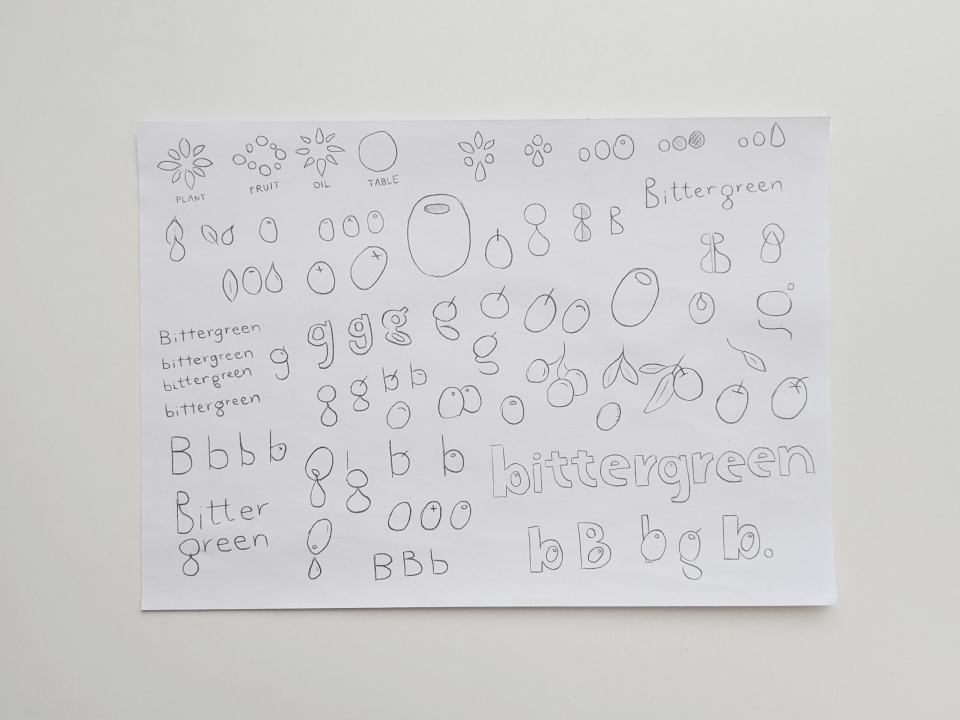 PLANT
FRUIT
OIL
TABLE
Bittergreen
B
Bittergreen
bittergreen
bittergreen
bittergreen
g
g g g
g g b b
B b b b
b b
Bitter
green
B B b
bittergreen
b B b g b.